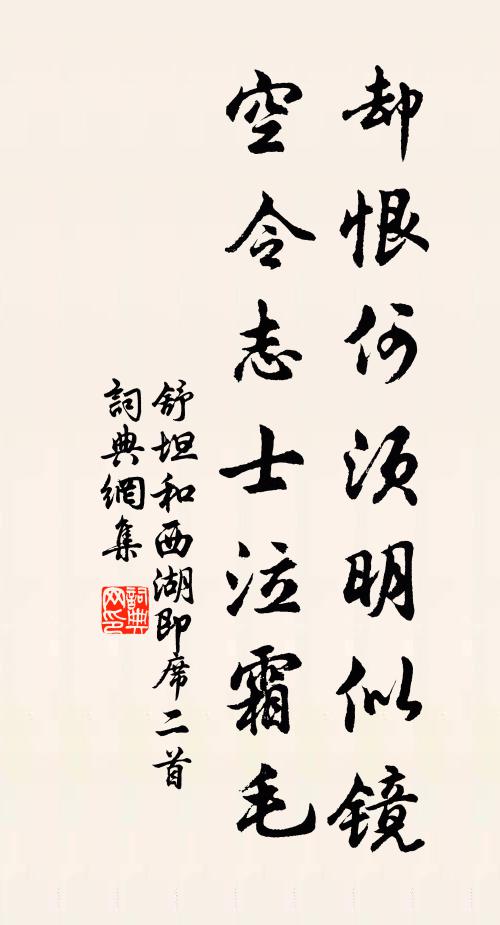 却恨何须明似镜
空令志士泣霜毛
舒坦和西湖即席二首
詞典網集
詞典
网印